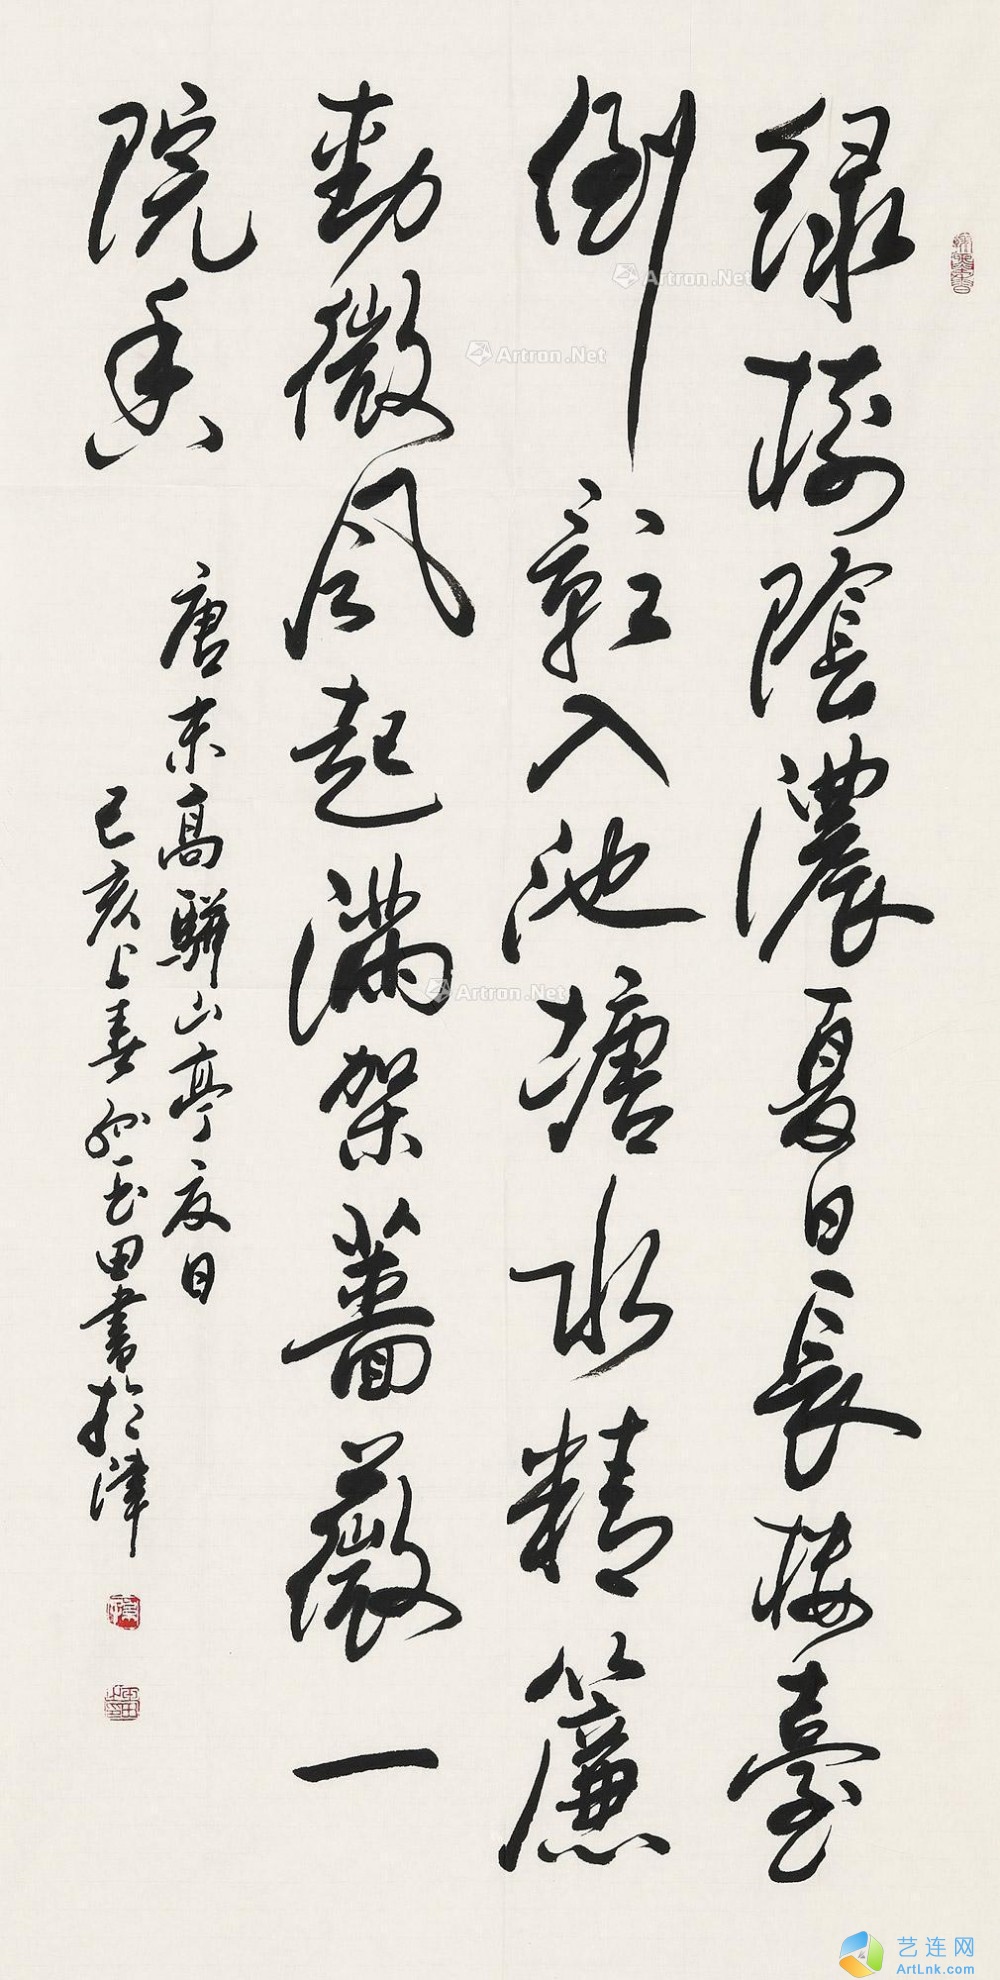 緑樹陰濃夏日長樓臺
倒影入池塘水精簾
動微風起滿架薔薇一
院香
唐末高駢山亭夏日
己亥上春孫玉田書於津
Artron.Net
Artron.Net
Artron.Net
艺连网
ArtLnk.com